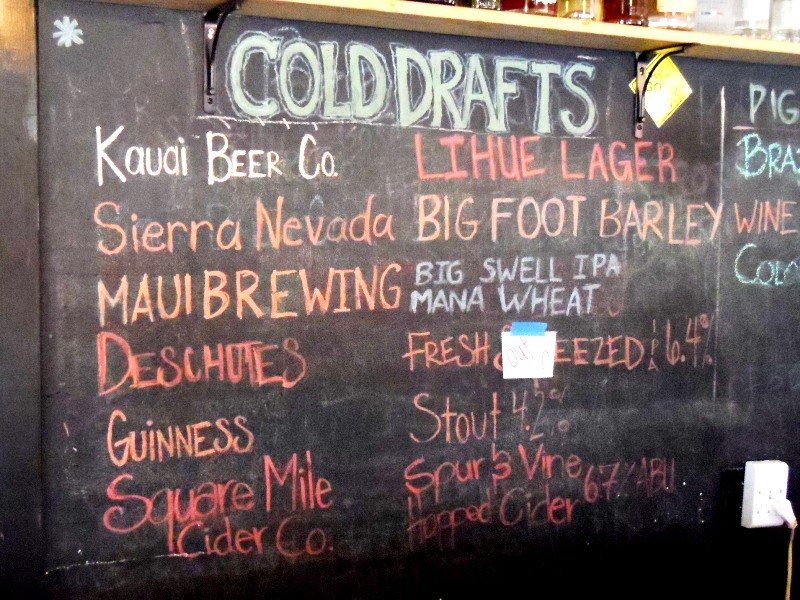 COLD DRAFTS
Kauai BEER Co. LIHUE LAGER
Sierra Nevada BIG FOOT BARLEY WINE
MAUI BREWING BIG SWELL IPA
MANA WHEAT
DESCHUTES FRESH EEZED 6.4%
out
GUINNESS Stout 4.2%
Square Mile Spur & Vine 6.7% ABV
Cider Co. Hopped Cider
PIG
BRAZ
COLO